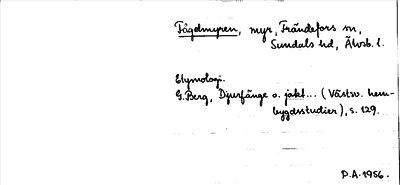 Fågelmyren, myr, Frändefors sn,
Sundals hd, Älvsb. l.
Etymologi.
G. Berg, Djurfänge o. jakt... (Västsv. hem-
bygdsstudier), s. 129.
P.A. 1956.